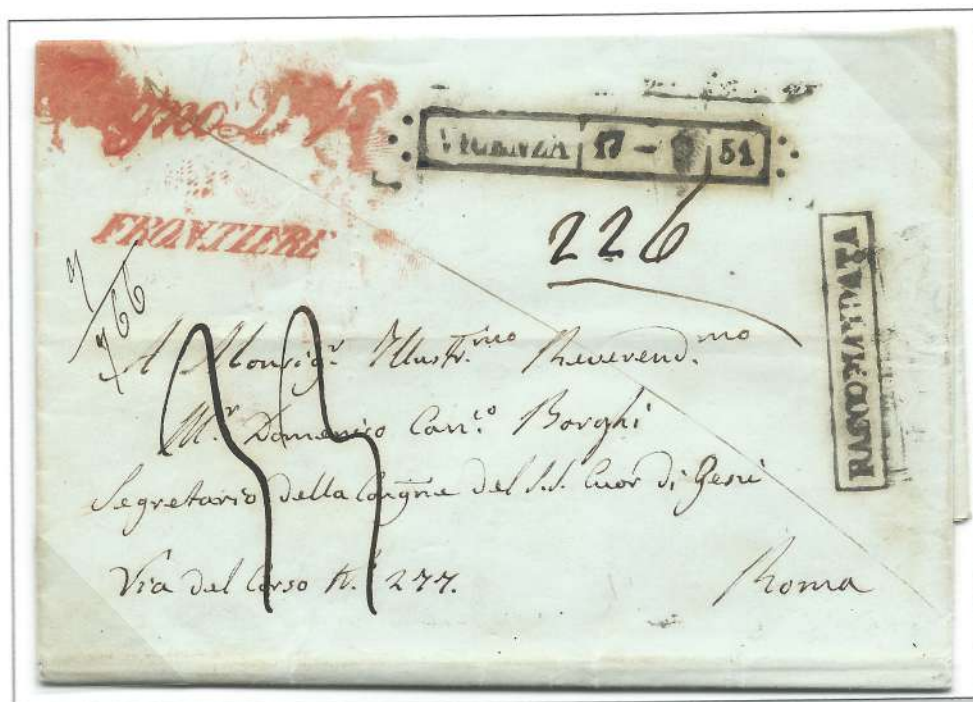 Regno L. V.
VICENZA 17 – 51
FRONTIERE
226
766
RACCOMANDATA
A Monsigr. Illustr.mo Reverend.mo
Mr. Domenico Can.co Borghi
Segretario della Congne del S.S. Cuor di Gesù
Via del Corso N. 277.
Roma